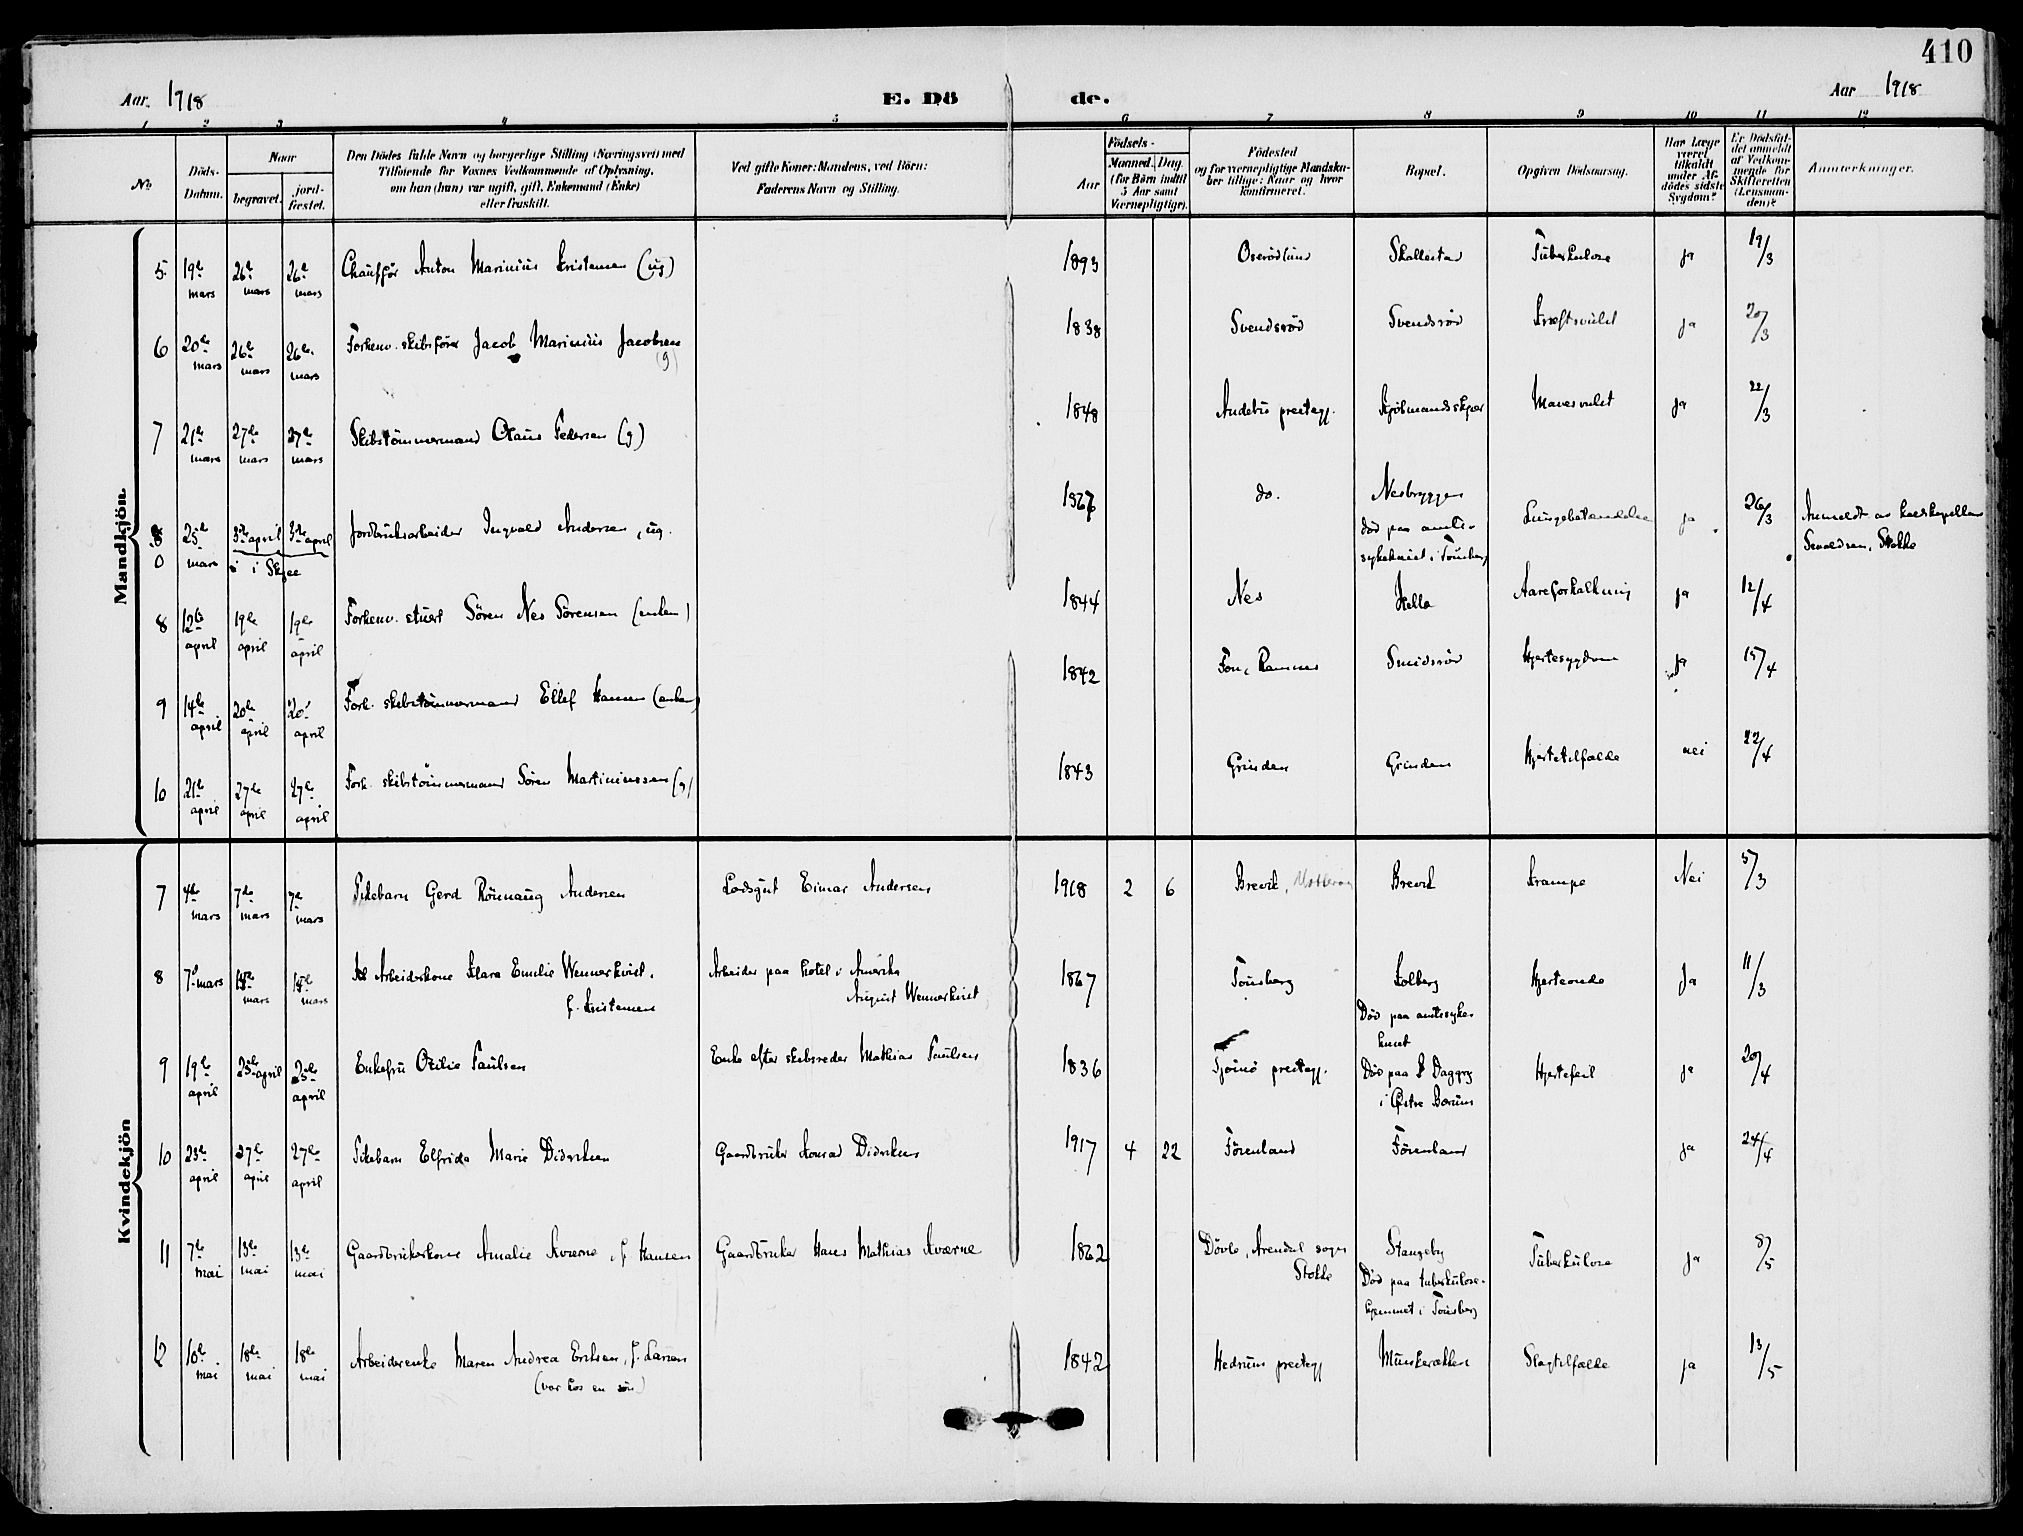 410
Aar 1918 E. Dö de. Aar 1918
1 2 3 4 5 6 7 8 9 10 11 12
No. Döds-Datum. Naar begravet. jord-fæstet. Den Dödes fulde Navn og borgerlige Stilling (Næringsvei) med Tilföiende for Voxnes Vedkommende af Oplysning, om han (hun) var ugift, gift, Enkemand (Enke) eller fraskilt. Ved gifte Koner: Mandens, ved Börn: Faderens Navn og Stilling. Födsels- Aar Maaned. Dag (for Börn indtil 5 Aar samt Værnepligtige). Födested og for værnepligtige Mandskaber tillige: Naar og hvor konfirmeret. Bopæl. Opgiven Dödsaarsag. Har Læge været tilkaldt under Afdödes sidste Sygdom? Er Dödsfaldet anmeldt af Vedkommende for Skifteretten (Lensmanden)? Anmærkninger.
Mandkjön
5 19de mars 26de mars 26de mars Chauffør Anton Marinius Kristensen (ug) 1893 Oserødlund Skallestad Tuberkulose ja 19/3
6 20de mars 26de mars 26de mars Forhenv. skibsfører Jacob Marinius Jacobsen (g) 1838 Svendsrød Svendsrød Kræftsvulst ja 20/3
7 21de mars 27de mars 27de mars Skibstømmermand Olaus Pedersen (g) 1848 Andebu prestegj. Kjølmandsskjær Mavesvulst ja 22/3
0 25de mars 3die april 3die april i Skjee Jordbruksarbeider Ingvald Andersen, ug. 1867 do. Nesbryggen død paa amtssykehuset i Tønsberg Lungebetændelse ja 26/3 Anmeldt av Stokke
8 12te april 19de april 19de april Forhenv. stuert Søren Nes Sørensen (enkem) 1844 Nes Hella Aareforkalkning ja 12/4
9 14de april 20de april 20de april Forh. skibstømmermand Ellef Hansen (enkem) 1842 Fon, Ramnes Smidsrød Hjertesygdom ja 15/4
10 21de april 27de april 27de april Forh. skibstømmermand Søren Martiniussen (g) 1843 Grinden Grinden Hjertetilfælde nei 22/4
Kvindekjön
7 4de mars 7de mars 7de mars Pikebarn Gerd Rønnaug Andersen Losgut Einar Andersen 1918 2 6 Brevik, Brevik Krampe Nei 5/3
8 7de mars mars mars Arbeiderkone Klara Emilie Wennerkvist, f. Kristensen Arbeider paa hotel i Amerika August Wennerkvist 1867 Tønsberg Kolberg Død paa amtssykehuset Hjerteonde Ja 11/3
9 19de april 25de april 25de april Enkefru Otilie Paulsen Enke efter skibsreder Mathias Paulsen 1836 Tjømø prestegj. Død paa Daggry i Østre Bærum Hjertefeil ja 20/4
10 23de april 27de april 27de april Pikebarn Elfrida Marie Didriksen Gaardbruker Konrad Didriksen 1917 4 22 Førenland Førenland ja 24/4
11 7de mai 13de mai 13de mai Gaardbrukerkone Amalie Kværne, f. Hansen Gaardbruker Hans Mathias Kværne 1862 Døvle, Arendal sogn Stokke Stangeby Død paa tuberkulosehjemmet i Tønsberg Tuberkulose ja 8/5
12 10de mai 18de mai 18de mai Arbeiderenke Maren Andrea Eriksen, f. Larsen (var hos en søn) 1842 Hedrum prestegj Munkerækken Slagtilfælde ja 13/5